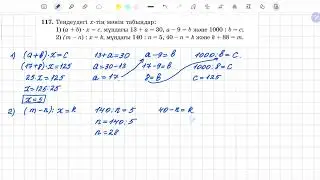 117. Теңдеудегі x-тің мәнін табыңдар:
1) (a + b) · x = c, мұндағы 13 + a = 30, a − 9 = b және 1000 : b = c.
2) (m − n) : x = k, мұндағы 140 : n = 5, 40 − n = k және k + 88 = m.
1) (a+b)·x=c 13+a=30 a-9=b 1000:b=c
(17+8)·x=125 a=30-13 17-9=b 1000:8=c
25·x=125 a=17 8=b c=125
x=125:25
x=5
2) (m-n):x=k 140:n=5 40-n=k
n=140:5
n=28